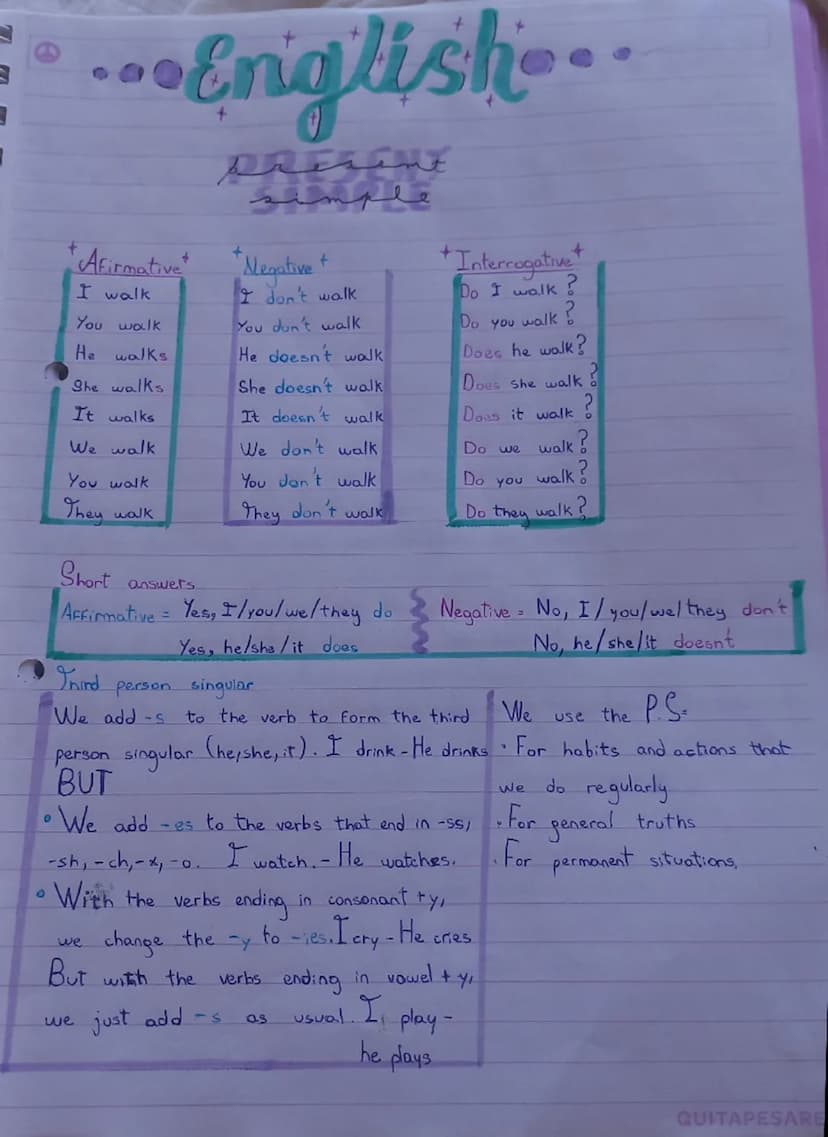 English
present
simple
Afirmative
I walk
You walk
He walks
She walks
It walks
We walk
You walk
They walk
Negative
I don't walk
You don't walk
He doesn't walk
She doesn't walk
It doesn't walk
We don't walk
You don't walk
They don't walk
Interrogative
Do I walk?
Do you walk?
Does he walk?
Does she walk?
Does it walk?
Do we walk?
Do you walk?
Do they walk?
Short answers
Affirmative = Yes, I/you/we/they do
Yes, he/she/it does
Negative = No, I/you/we/they don't
No, he/she/it doesn't
Third person singular
We add -s to the verb to form the third
person singular (he,she,it). I drink - He drinks
BUT
• We add -es to the verbs that end in -ss,
-sh, -ch, -x, -o. I watch. - He watches.
• With the verbs ending in consonant + y,
we change the -y to -ies. I cry - He cries
But with the verbs ending in vowel + y,
we just add -s as usual. I play -
he plays
We use the P.S=
· For habits and actions that
we do regularly
· For general truths
· For permanent situations.
QUITAPESARE